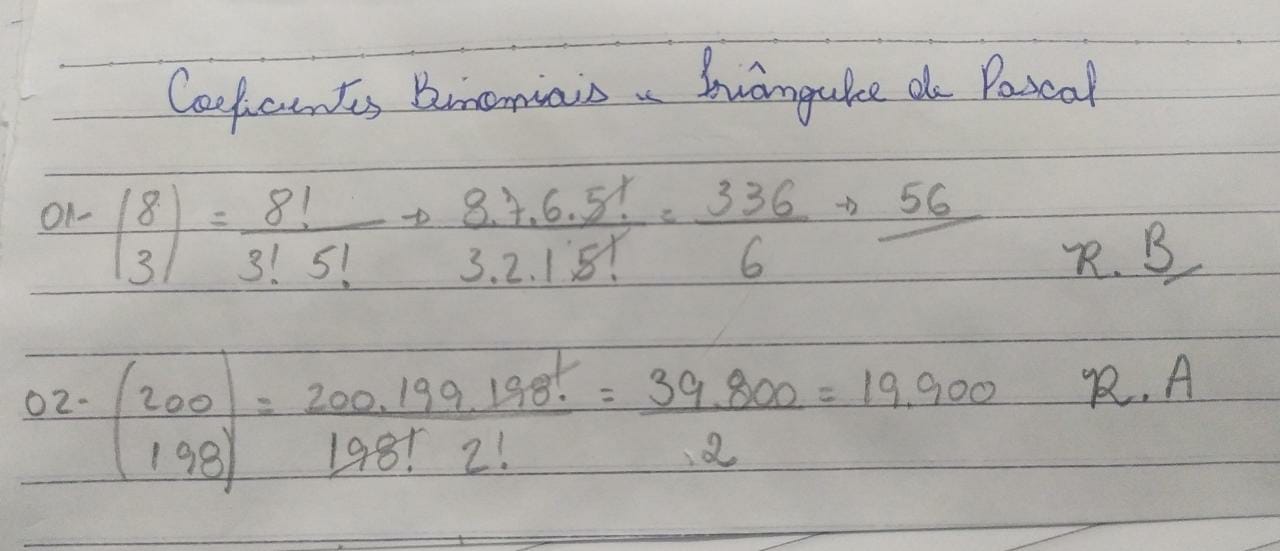 Coeficientes Binomiais e Triângulo de Pascal
01- (8 3) = 8!/3! 5! → 8.7.6.5!/3.2.1 5! = 336/6 → 56 R. B
02- (200 198) = 200.199.198!/198! 2! = 39.800/2 = 19.900 R. A